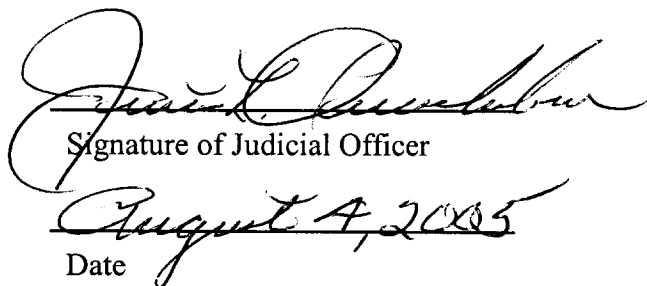 Signature of Judicial Officer
August 4, 2005
Date